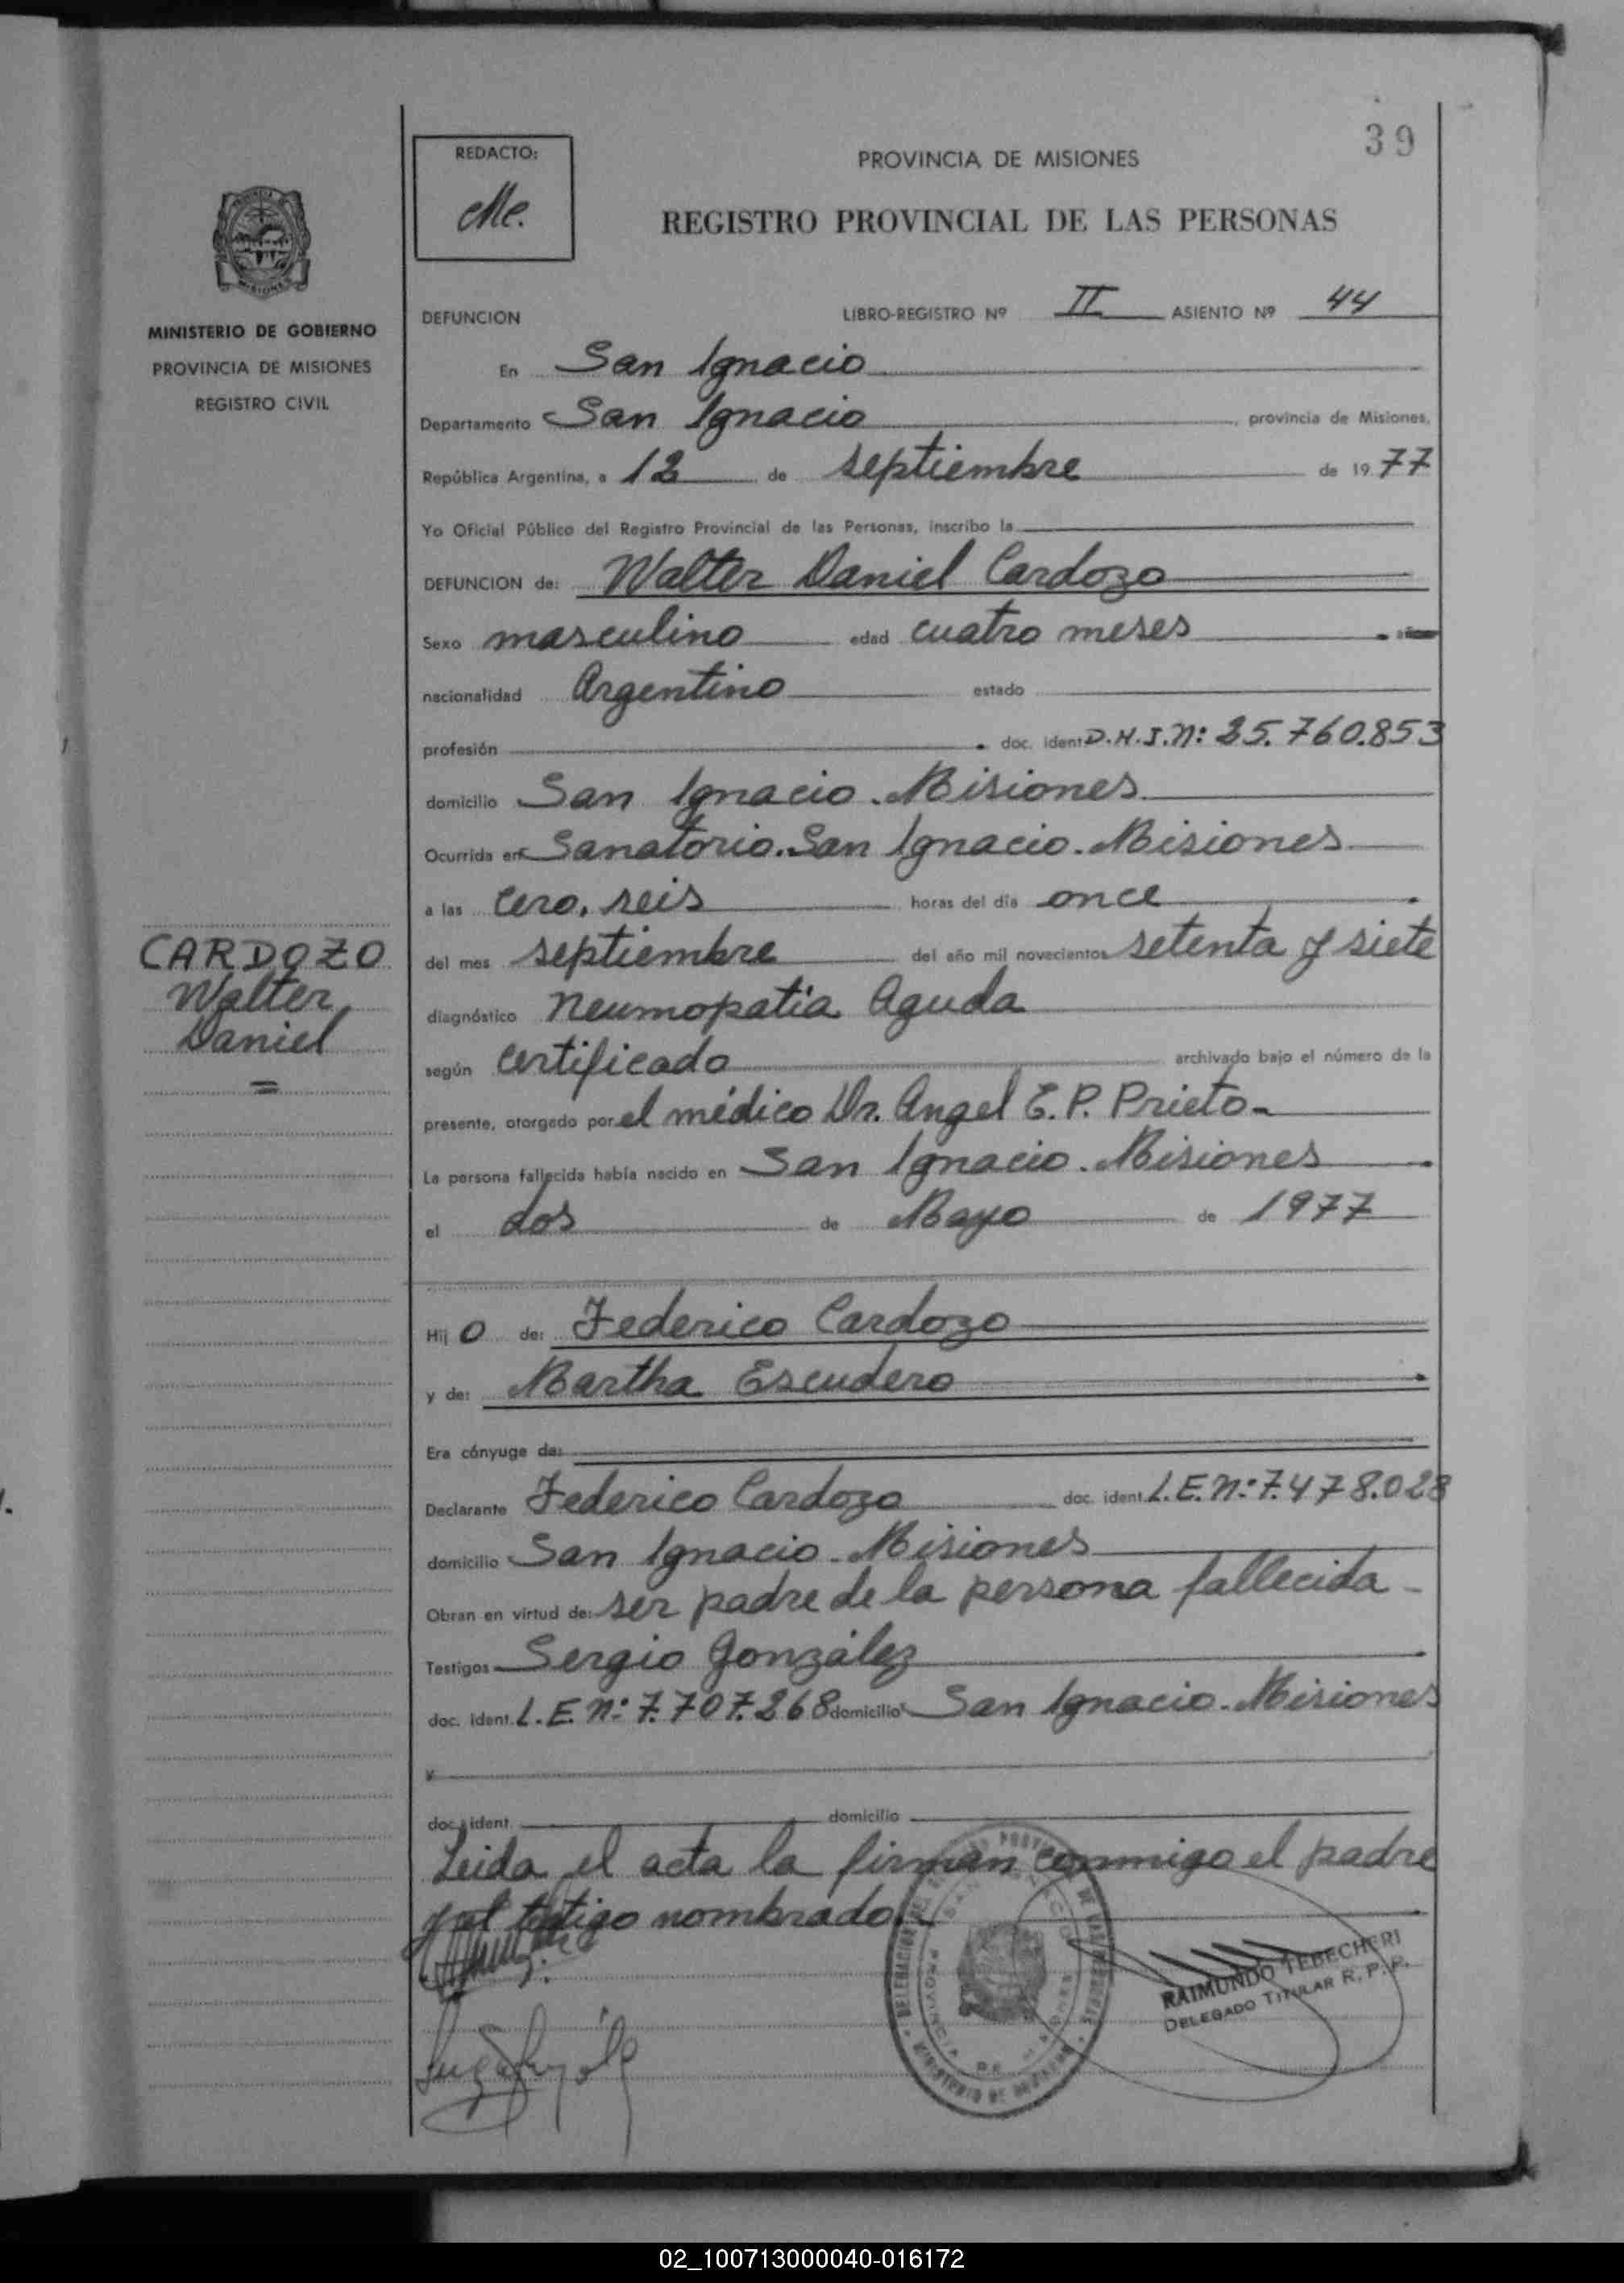 39
REDACTO:
Me.
PROVINCIA DE MISIONES
REGISTRO PROVINCIAL DE LAS PERSONAS
MISIONES
MINISTERIO DE GOBIERNO
PROVINCIA DE MISIONES
REGISTRO CIVIL
DEFUNCION LIBRO-REGISTRO Nº II ASIENTO Nº 44
En San Ignacio
Departamento San Ignacio, provincia de Misiones,
República Argentina, a 12 de septiembre de 1977
Yo Oficial Público del Registro Provincial de las Personas, inscribo la
DEFUNCION de: Walter Daniel Cardozo
Sexo masculino edad cuatro meses
nacionalidad Argentino estado
profesión doc. ident. D.N.I.N: 25.760.853
domicilio San Ignacio. Misiones
Ocurrida en Sanatorio. San Ignacio. Misiones
a las Cero, seis horas del día once
CARDOZO
Walter
Daniel
=
del mes septiembre del año mil novecientos setenta y siete
diagnóstico Neumopatia Aguda
según Certificado archivado bajo el número de la
presente, otorgado por el médico Dr. Angel E. P. Prieto-
La persona fallecida había nacido en San Ignacio. Misiones
el dos de Mayo de 1977
Hijo de: Federico Cardozo
y de: Martha Escudero
Era cónyuge de:
Declarante Federico Cardozo doc. ident. L.E.N: 7.478.028
domicilio San Ignacio. Misiones
Obran en virtud de: ser padre de la persona fallecida-
Testigos Sergio González
doc. ident. L.E. N: 7.707.268 domicilio San Ignacio. Misiones
y
doc. ident. domicilio
Leida el acta la firman conmigo el padre
y el testigo nombrado.
RAIMUNDO TEBECHERI
DELEGADO TITULAR R. P. P.
02_100713000040-016172